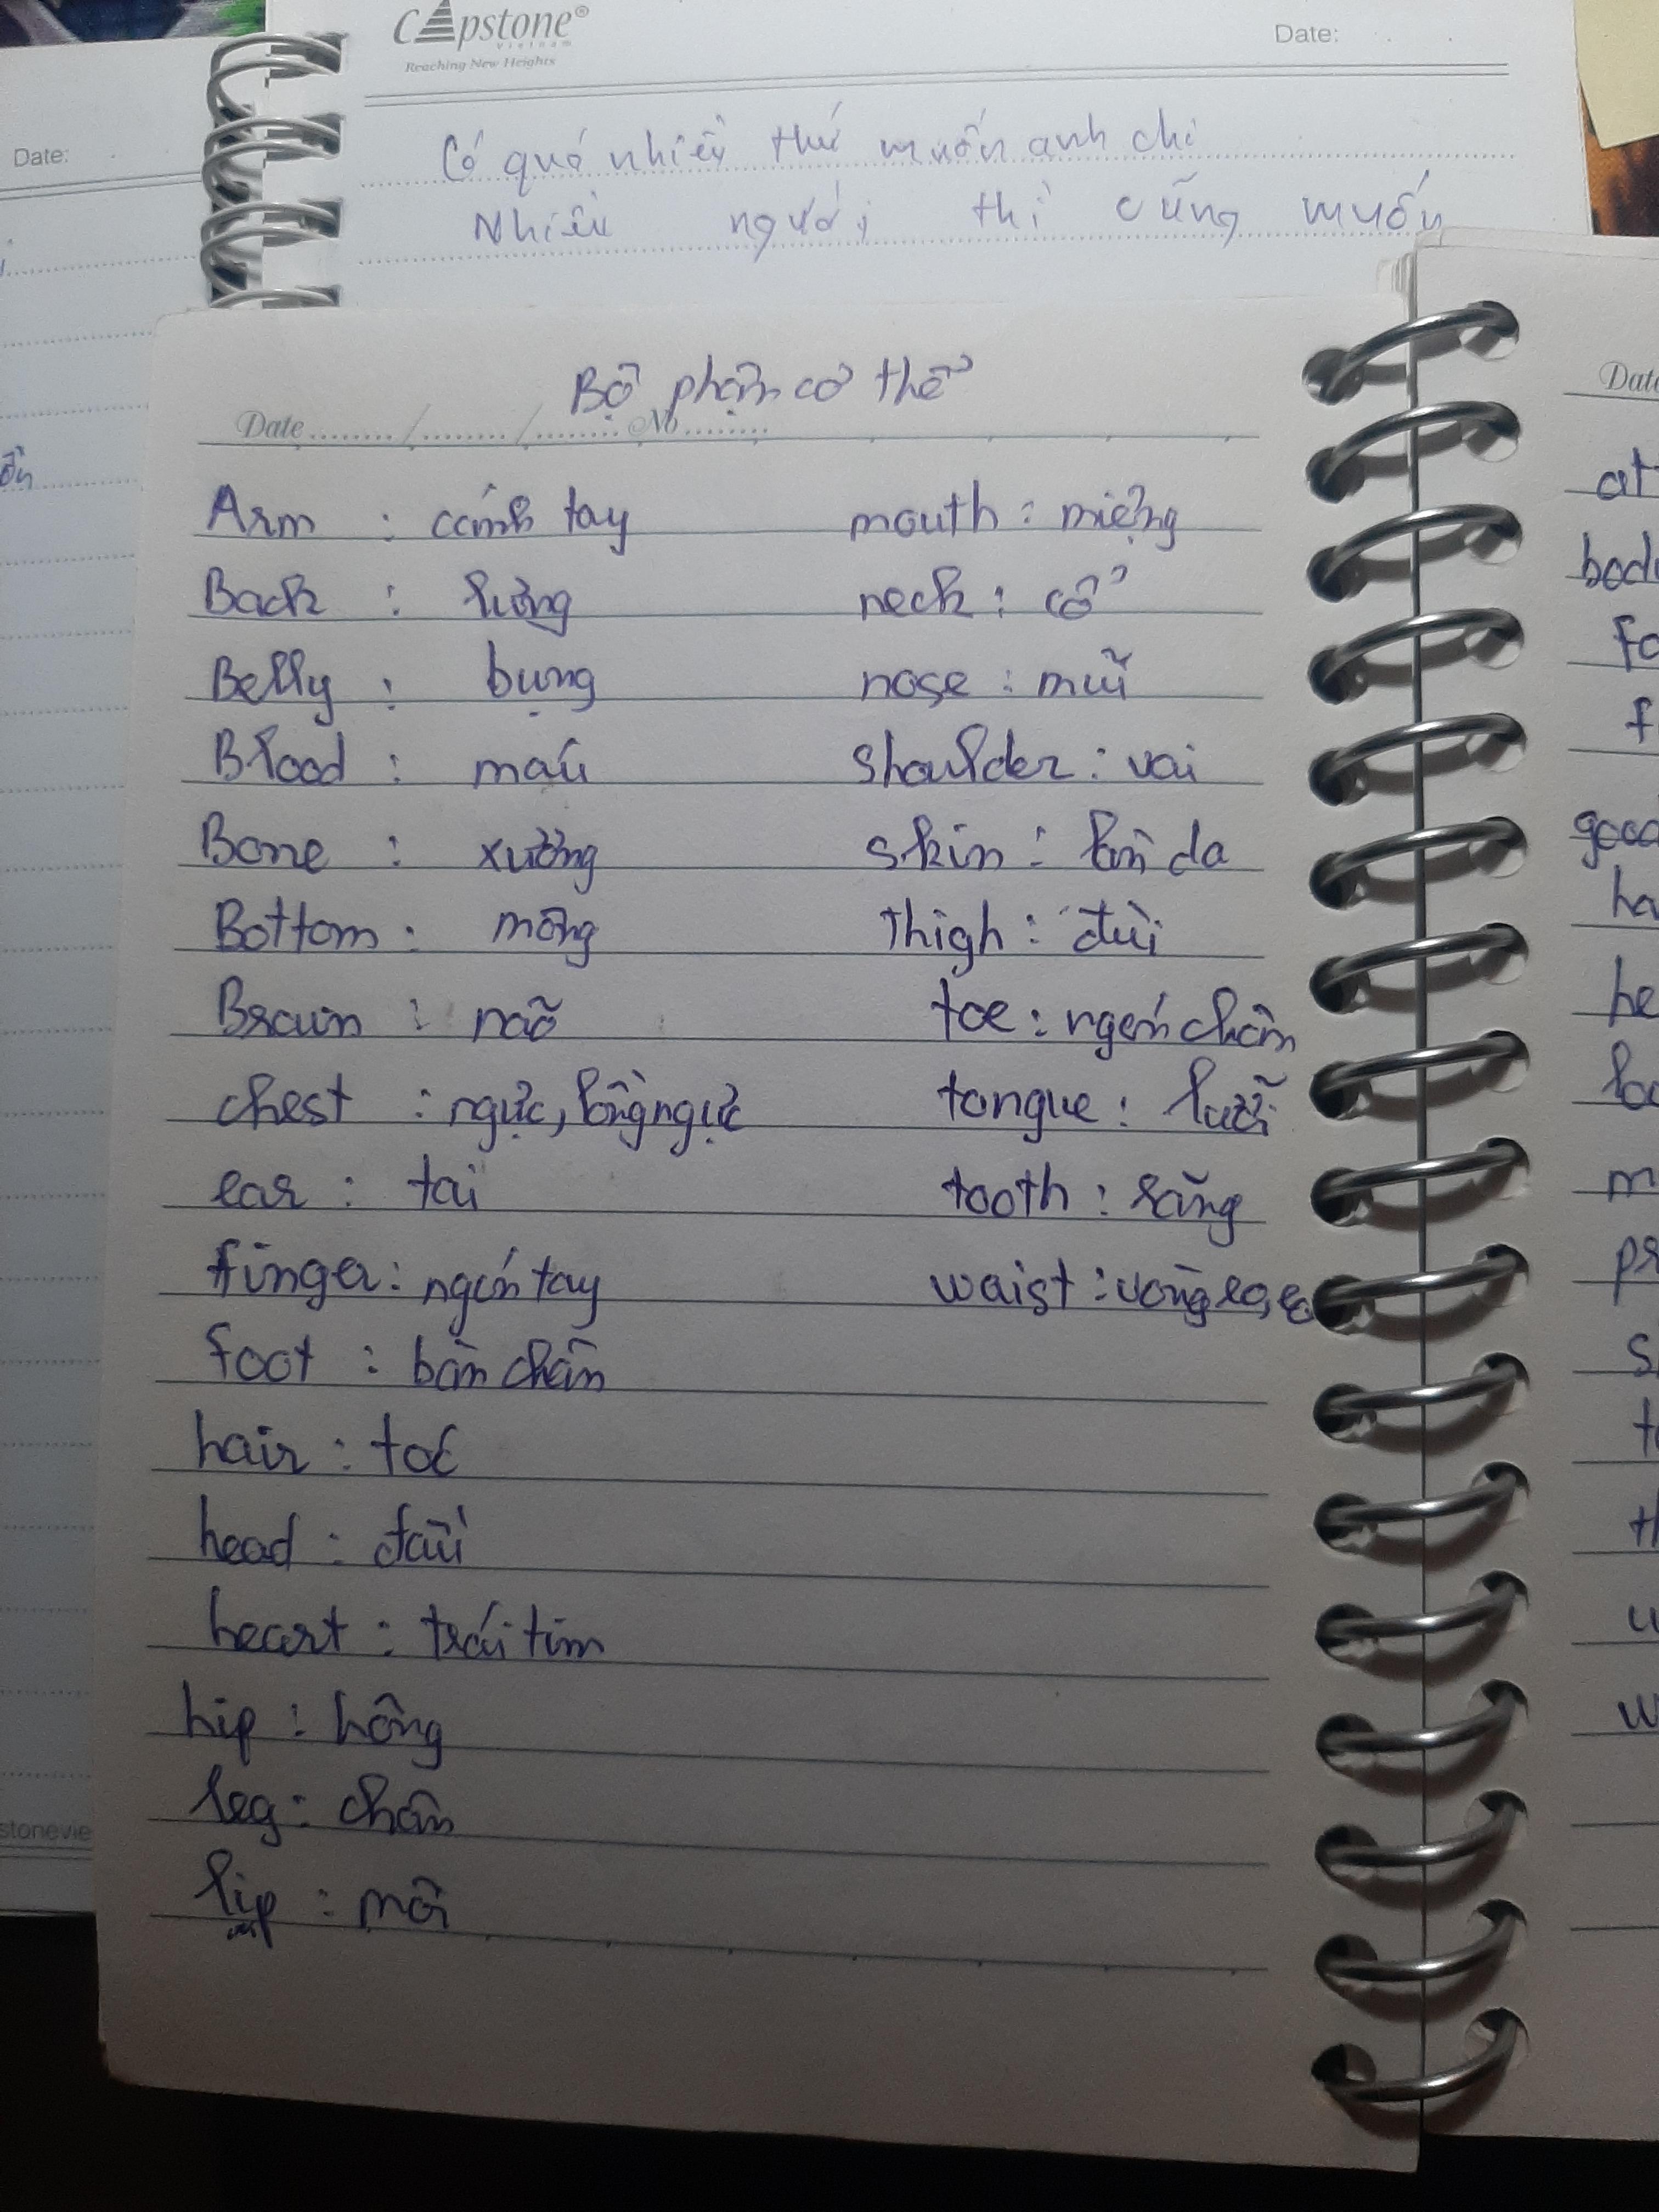 Capstone®
Vietnam
Reaching New Heights
Date:
Date:
Có quá nhiều thứ muốn anh chi
Nhiều người thì cũng muốn
Bộ phận cơ thể
Date ......../......../........ No ........
Arm : cánh tay
Back : lưng
Belly : bụng
Blood : máu
Bone : xương
Bottom : mông
Brain : não
chest : ngực, lồng ngực
ear : tai
finger : ngón tay
foot : bàn chân
hair : tóc
head : đầu
heart : trái tim
hip : hông
leg : chân
lip : môi
mouth : miệng
neck : cổ
nose : mũi
shoulder : vai
skin : làn da
Thigh : đùi
toe : ngón chân
tongue : lưỡi
tooth : răng
waist : vòng eo, eo
Date
at
bod
fo
f
good
ha
he
m
pr
s
t
th
u
w
stonevie